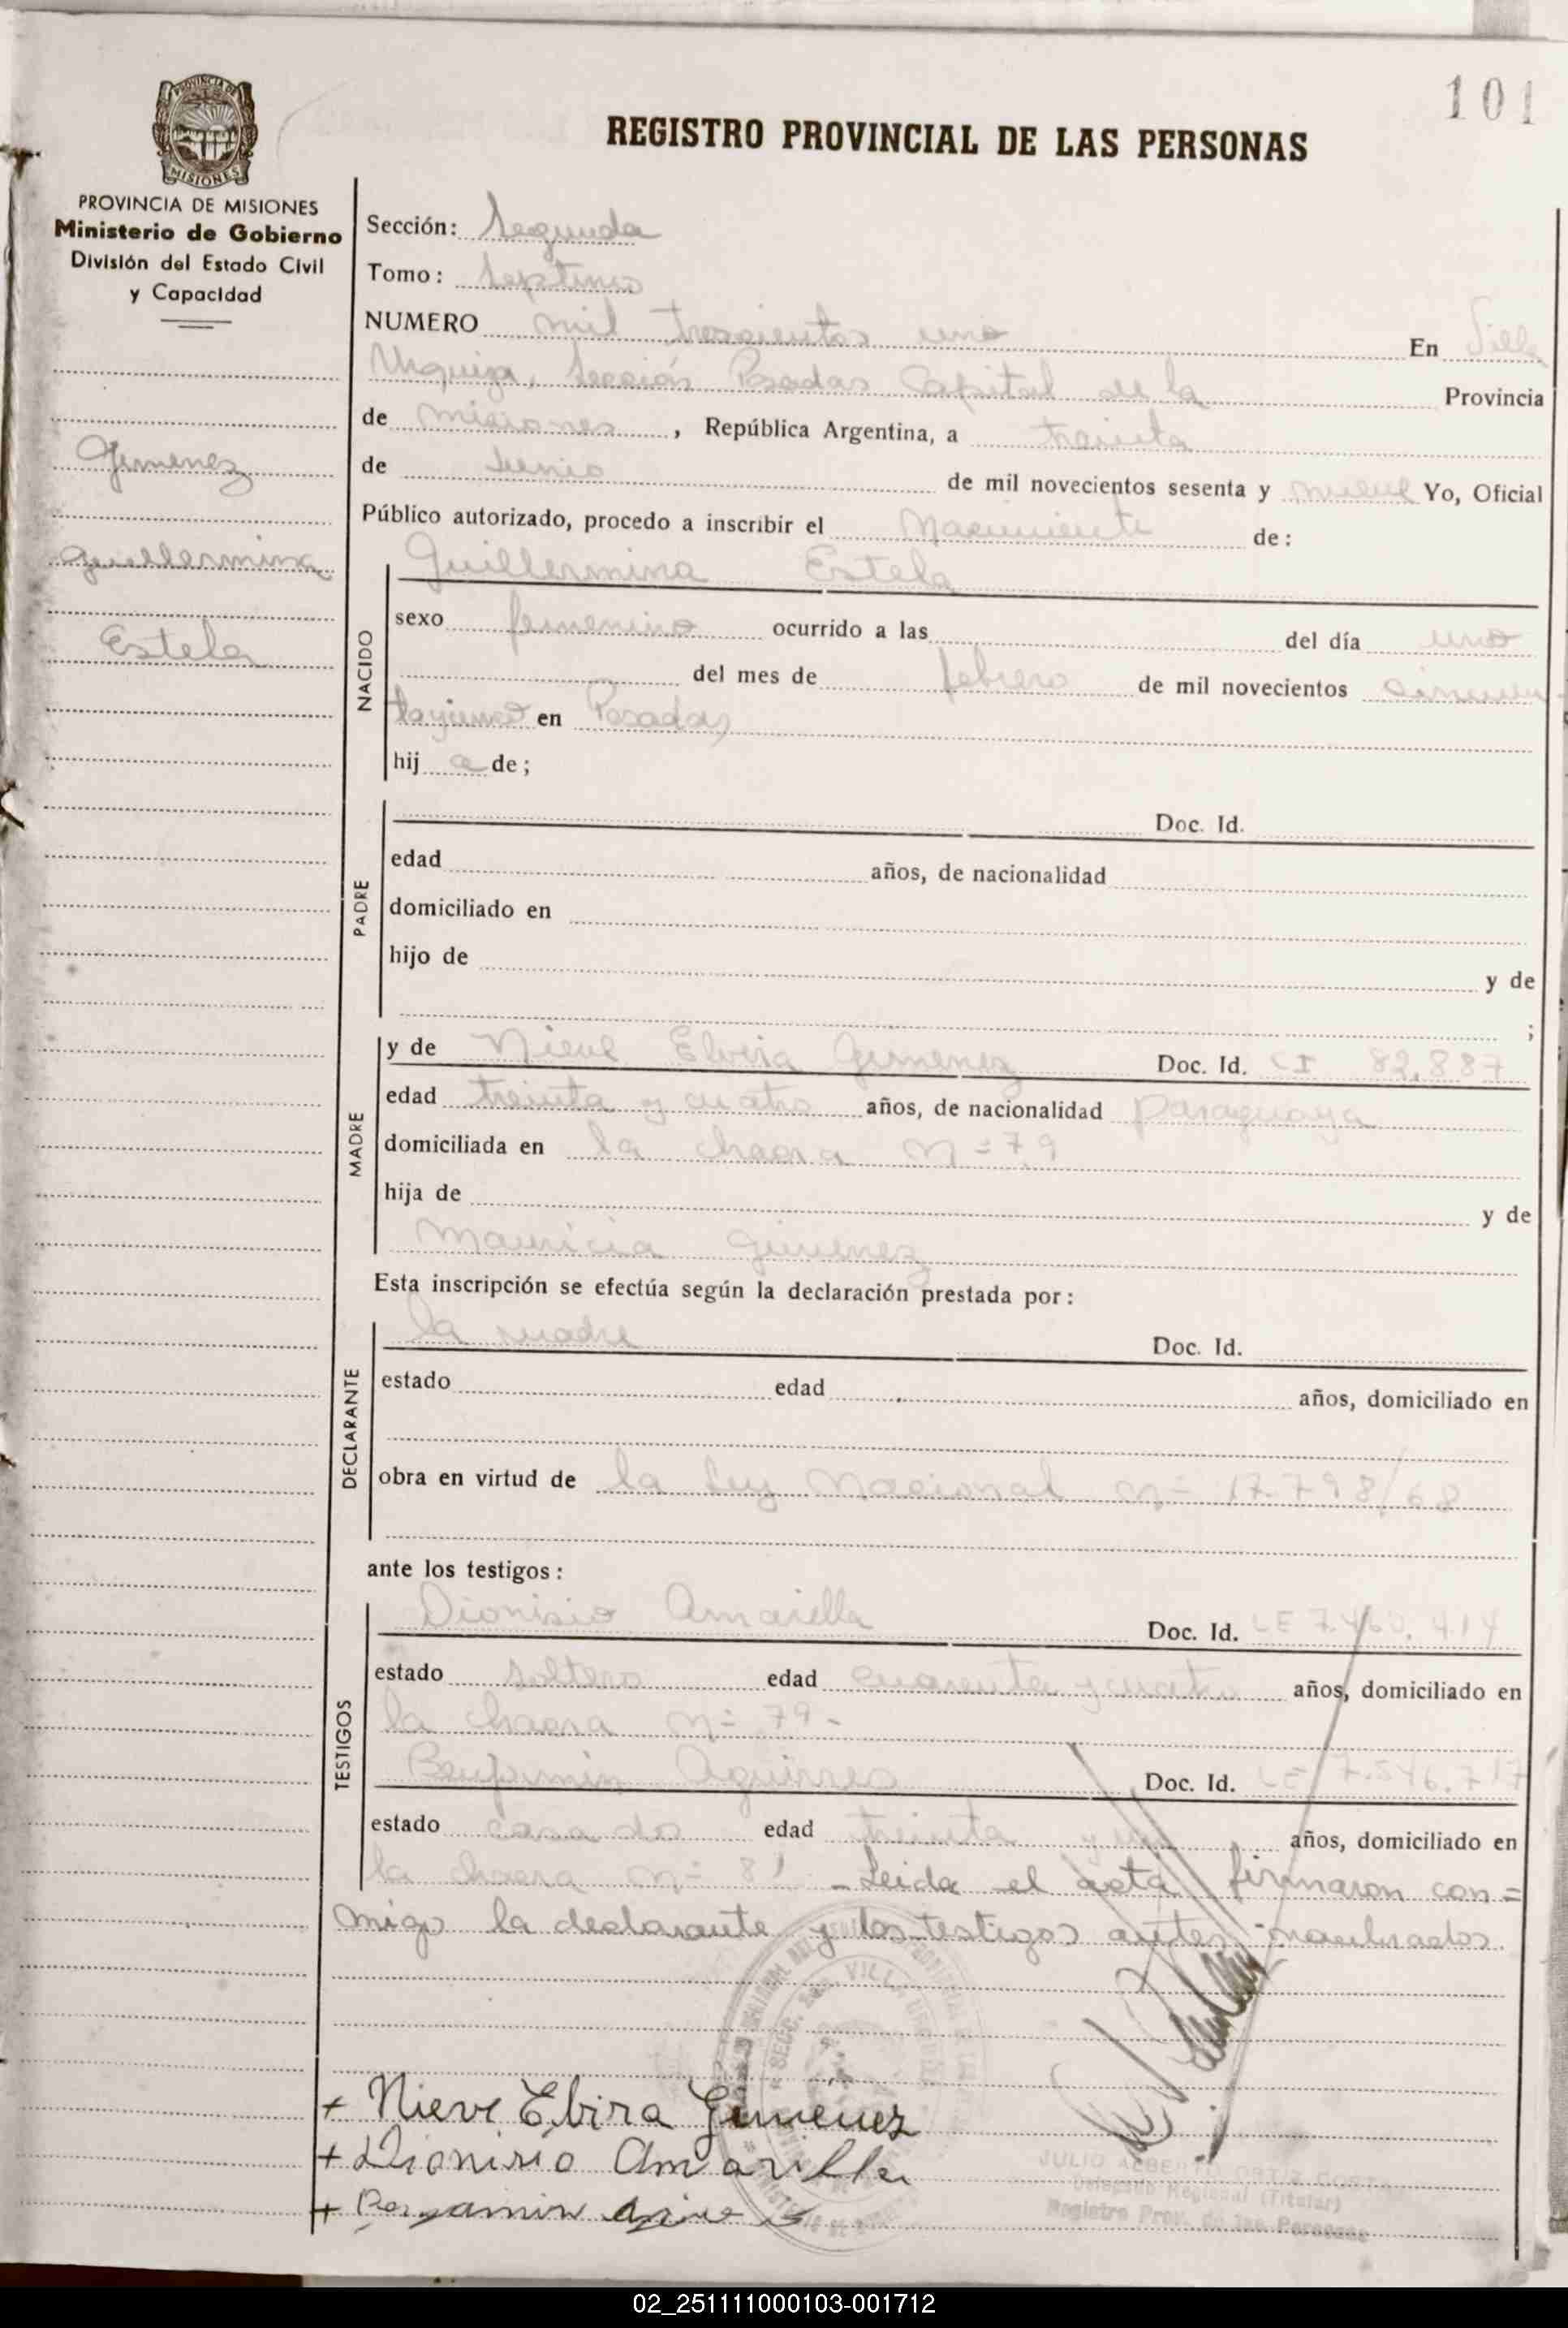 101
PROVINCIA DE
MISIONES
PROVINCIA DE MISIONES
Ministerio de Gobierno
División del Estado Civil
y Capacidad
Gimenez
Guillermina
Estela
REGISTRO PROVINCIAL DE LAS PERSONAS
Sección: Segunda
Tomo: Septimo
NUMERO mil trescientos uno En Villa
Urquiza, Sección Posadas Capital de la Provincia
de Misiones, República Argentina, a treinta
de Junio de mil novecientos sesenta y nueve Yo, Oficial
Público autorizado, procedo a inscribir el Nacimiento de:
NACIDO
Guillermina Estela
sexo femenino ocurrido a las del día uno
del mes de febrero de mil novecientos cincuen
en Posadas
hij a de;
PADRE
Doc. Id.
edad años, de nacionalidad
domiciliado en
hijo de y de
;
MADRE
y de Nieve Elvira Gimenez Doc. Id. CI 82.887
edad treinta y cuatro años, de nacionalidad paraguaya
domiciliada en la chacra n= 79
hija de y de
Mauricia Gimenez
Esta inscripción se efectúa según la declaración prestada por:
DECLARANTE
la madre Doc. Id.
estado edad años, domiciliado en
obra en virtud de la Ley Nacional n= 17.798/68
ante los testigos:
TESTIGOS
Dionisio Amarilla Doc. Id. LE 7.460.414
estado soltero edad cuarenta y cuatro años, domiciliado en
la chacra n= 79-
Benjamin Aguirres Doc. Id. LE 7.546.717
estado casado edad treinta y un años, domiciliado en
la chacra n= 81 - Leida el acta firmaron con=
migo la declarante y los testigos antes nombrados.
+ Nieve Elbira Gimenez
+ Dionisio Amarilla
+ Benjamin
JULIO ALBERTO ORTIZ
Delegado Regional (Titular)
Registro Prov. de las Personas
02_251111000103-001712